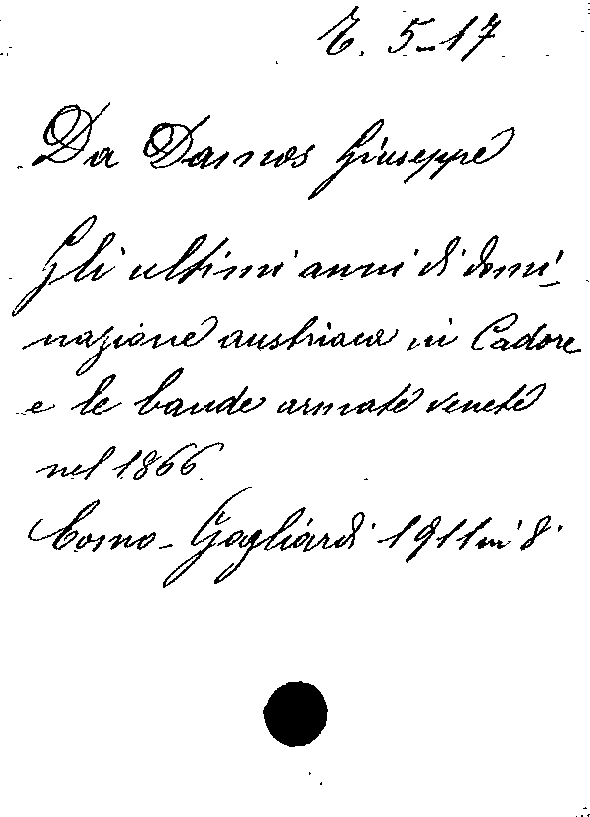 E. 5-17
Da Damos Giuseppe
Gli ultimi anni di domi-
nazione austriaca in Cadore
e le bande armate venete
nel 1866
Como - Gagliardi 1911 in 8°